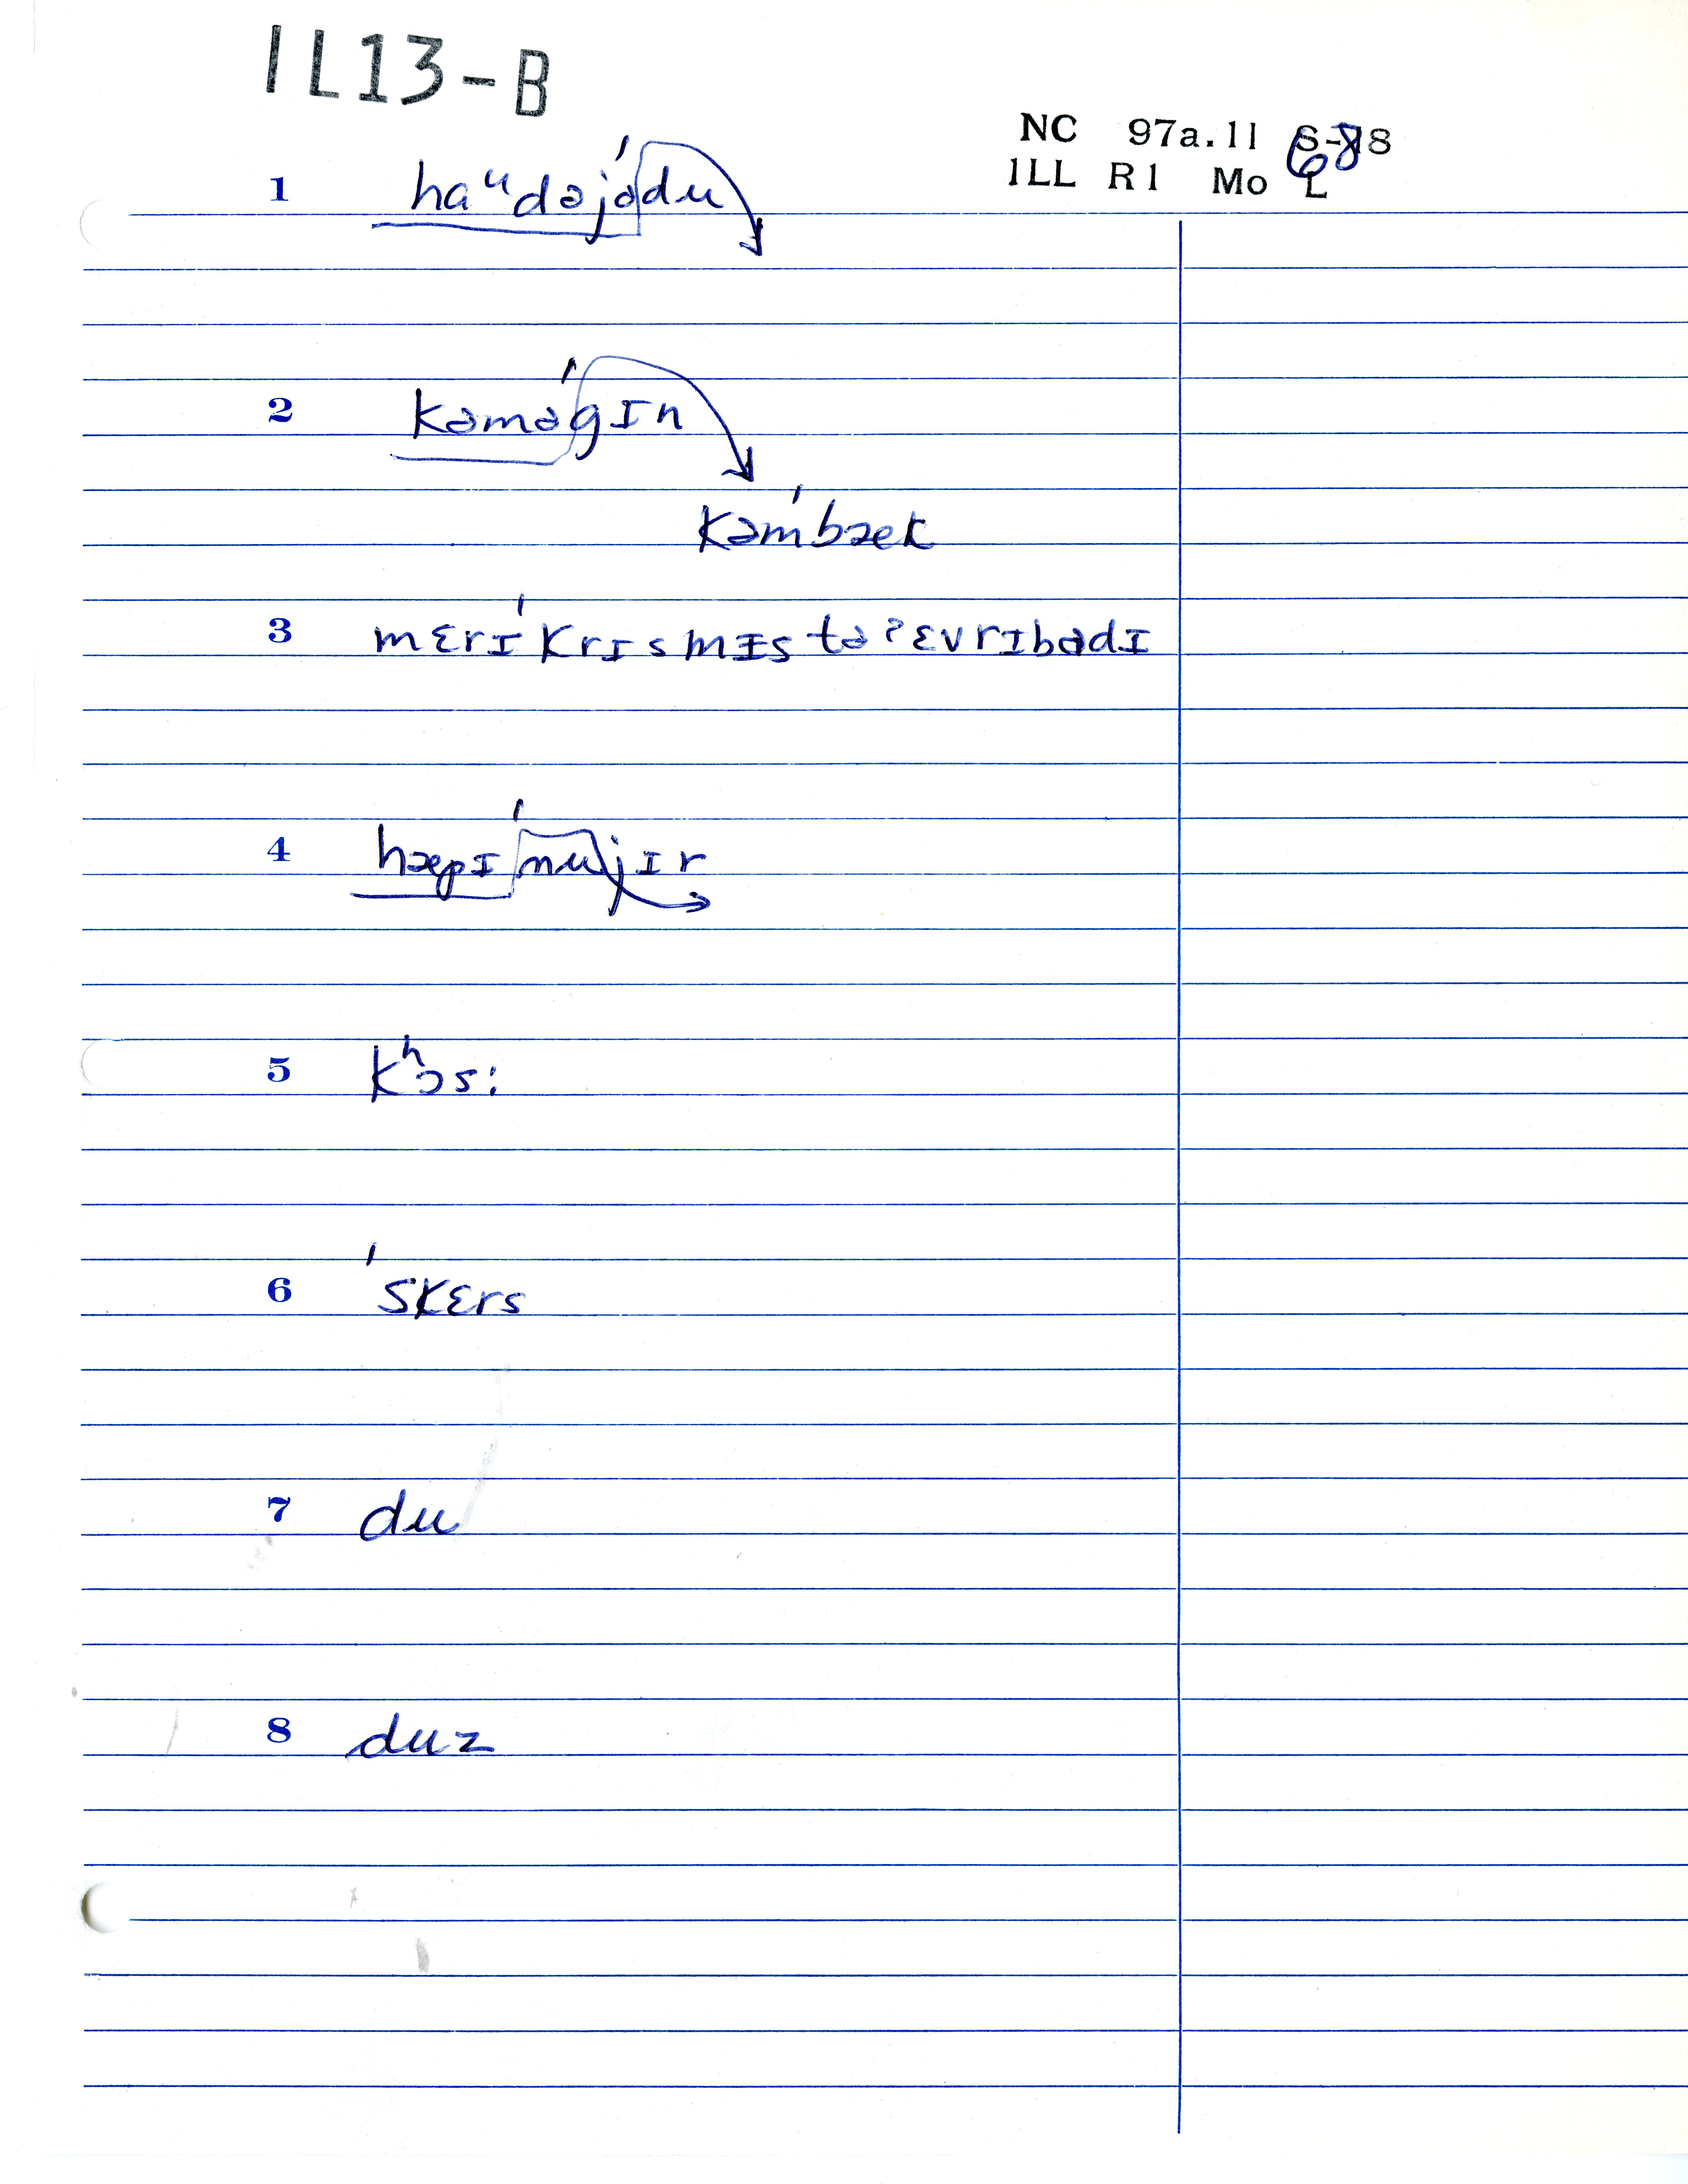 IL13-B
NC 97a.11 S-18
68
ILL R1 Mo L
1 haᵘdəjədu
2 kəməgɪn
kəmbæk
3 mɛrɪkrɪsmɪstəʔɛvrɪbədɪ
4 hæpɪnujɪr
5 kʰɔs:
6 'skɛrs
7 du
8 duz